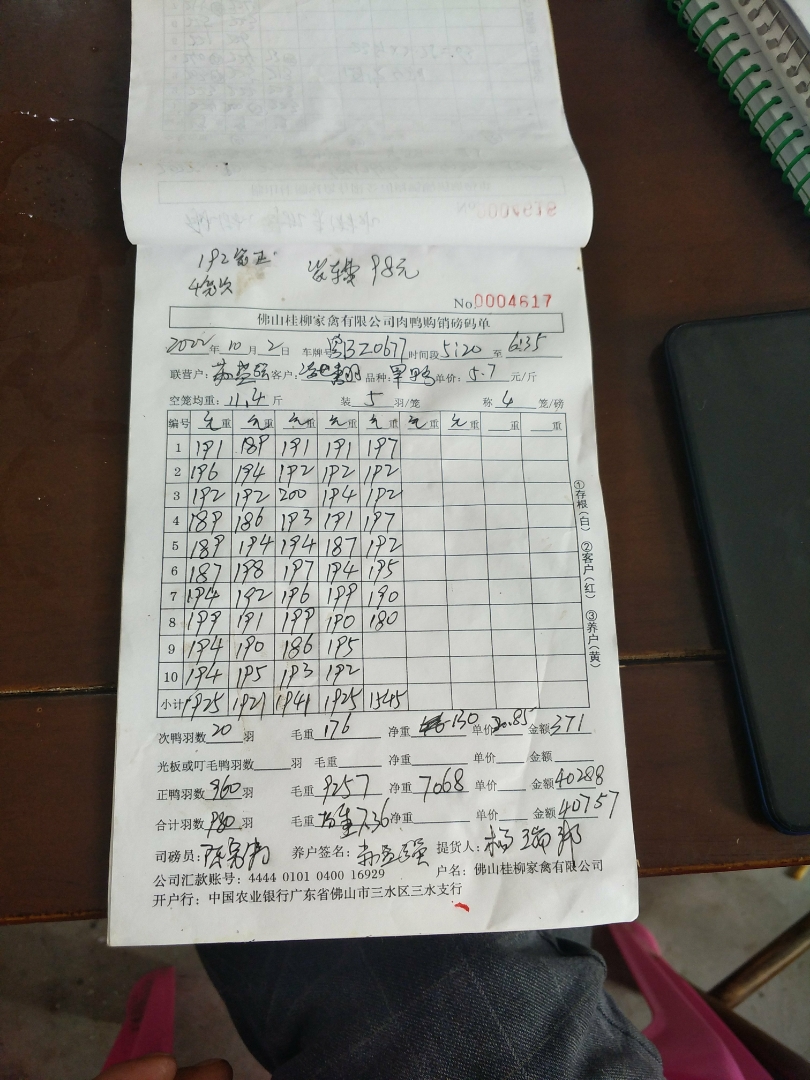 192笼正
4笼次
装车费 98元
No.0004617
佛山桂柳家禽有限公司肉鸭购销磅码单
2022年10月2日 车牌号 粤B Z0677 时间段 5:20 至 6:35
联营户: 客户: 品种: 单价: 5.7 元/斤
空笼均重: 11.4 斤 装 5 羽/笼 称 4 笼/磅
编号 毛重 毛重 毛重 毛重 毛重 毛重 毛重 重 重
1 191 189 191 191 197
2 196 194 192 192 192
3 192 192 200 194 192
4 189 186 193 191 197
5 189 194 194 187 192
6 187 198 197 194 195
7 194 192 196 199 190
8 199 191 199 190 180
9 194 190 186 195
10 194 195 193 192
小计 1925 1921 1941 1925 1545
次鸭羽数 20 羽 毛重 176 净重 130 单价 2.85 金额 371
光板或叮毛鸭羽数 羽 毛重 净重 单价 金额
正鸭羽数 960 羽 毛重 9257 净重 7068 单价 金额 40288
合计羽数 980 羽 毛重 均重7.36 净重 单价 金额 40757
司磅员: 养户签名: 提货人:
公司汇款账号: 4444 0101 0400 16929 户名: 佛山桂柳家禽有限公司
开户行: 中国农业银行广东省佛山市三水区三水支行
①存根(白) ②客户(红) ③养户(黄)